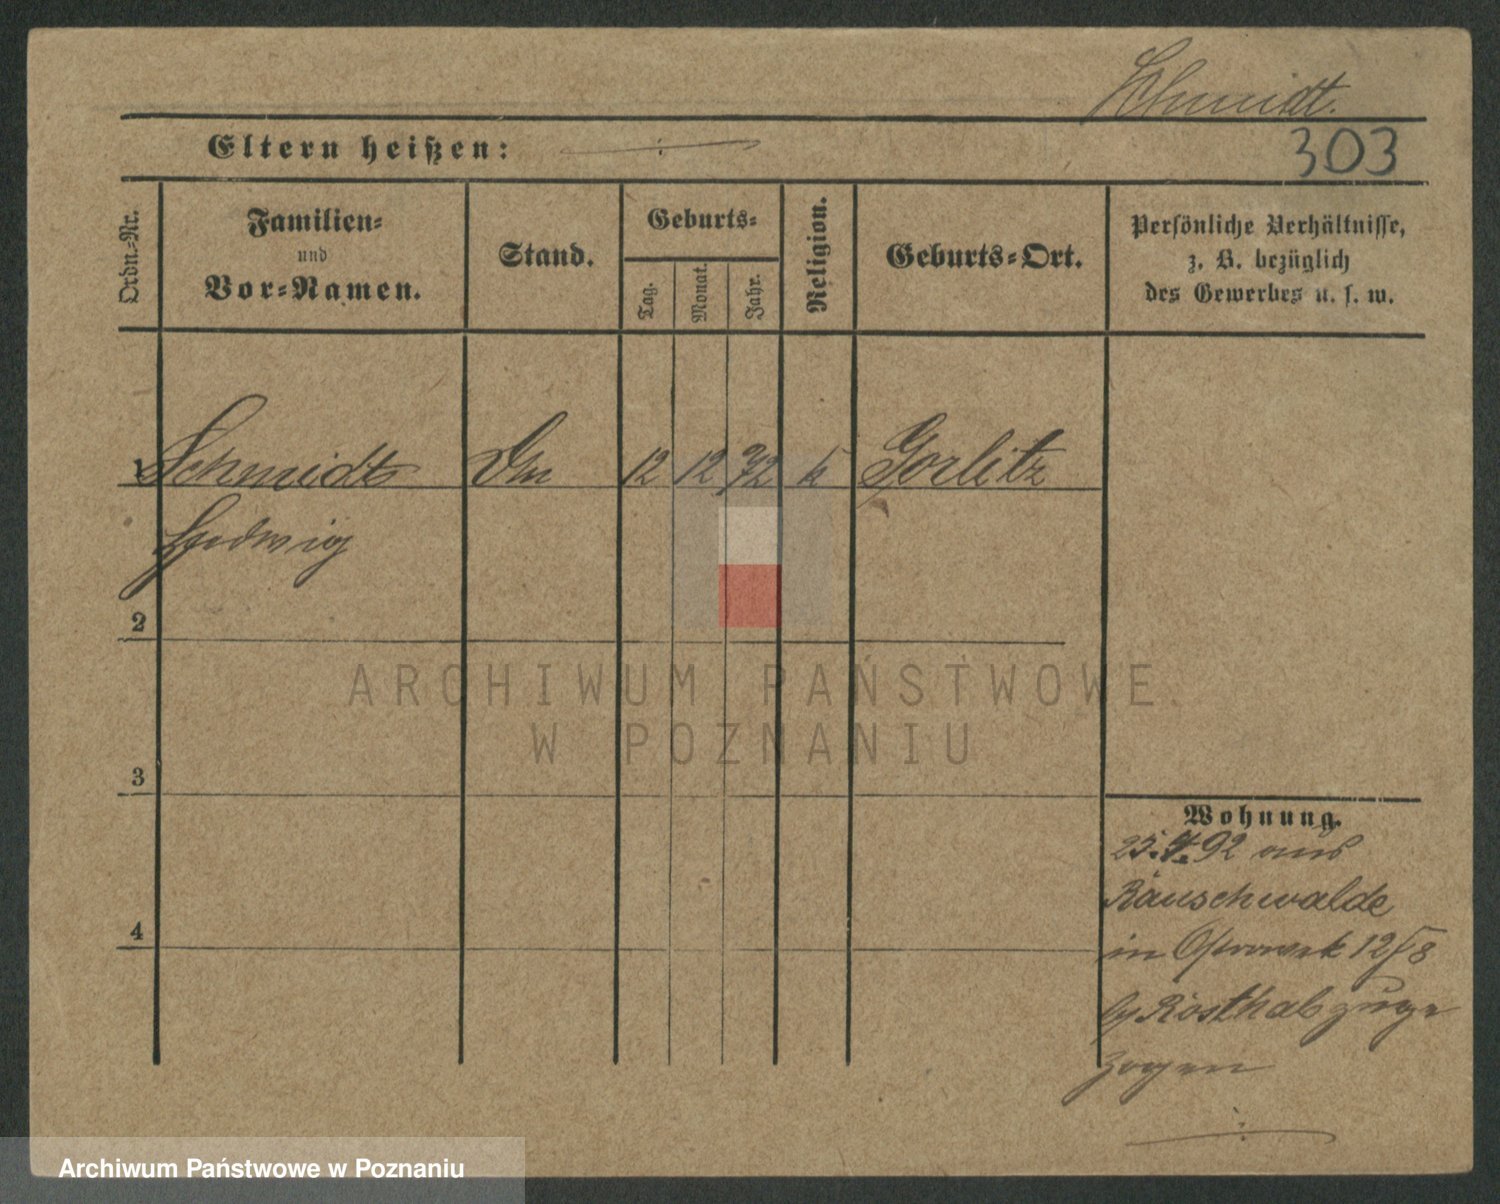 Schmidt.
Eltern heißen:
303
Ordn.-Nr.
Familien-
und
Vor-Namen.
Stand.
Geburts-
Tag.
Monat.
Jahr.
Religion.
Geburts-Ort.
Persönliche Verhältnisse,
z. B. bezüglich
des Gewerbes u. s. w.
1 Schmidt 12 12 72 k Gorlitz
Hedwig
2
ARCHIWUM PAŃSTWOWE
W POZNANIU
3
Wohnung.
25.4.92 aus
Rauschwalde
4
in 12/8
zuge
zogen
Archiwum Państwowe w Poznaniu